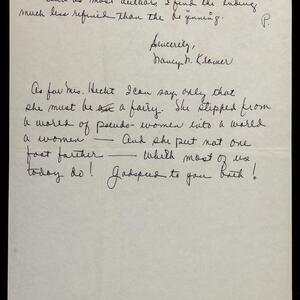 as most authors I find the ending
much less refined than the beginning. P.
Sincerely,
Nancy N. Kramer
As for Mrs. Hecht I can say only that
she must be a fairy. She stepped from
a world of pseudo-women into a world
a women — And she put not one
foot farther — Which most of us
today do! Godspeed to you both!